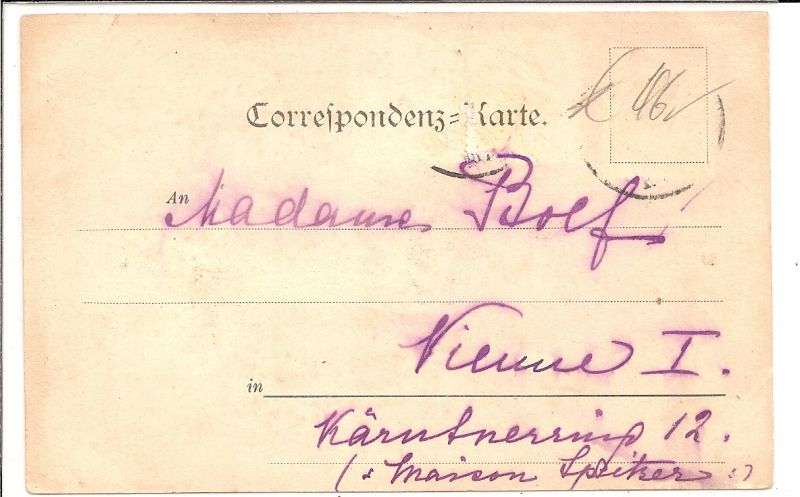 Correspondenz-Karte.
An Madame Bolf
Vienne I.
in
Kärntnerring 12.
(: Maison Spitzer :)